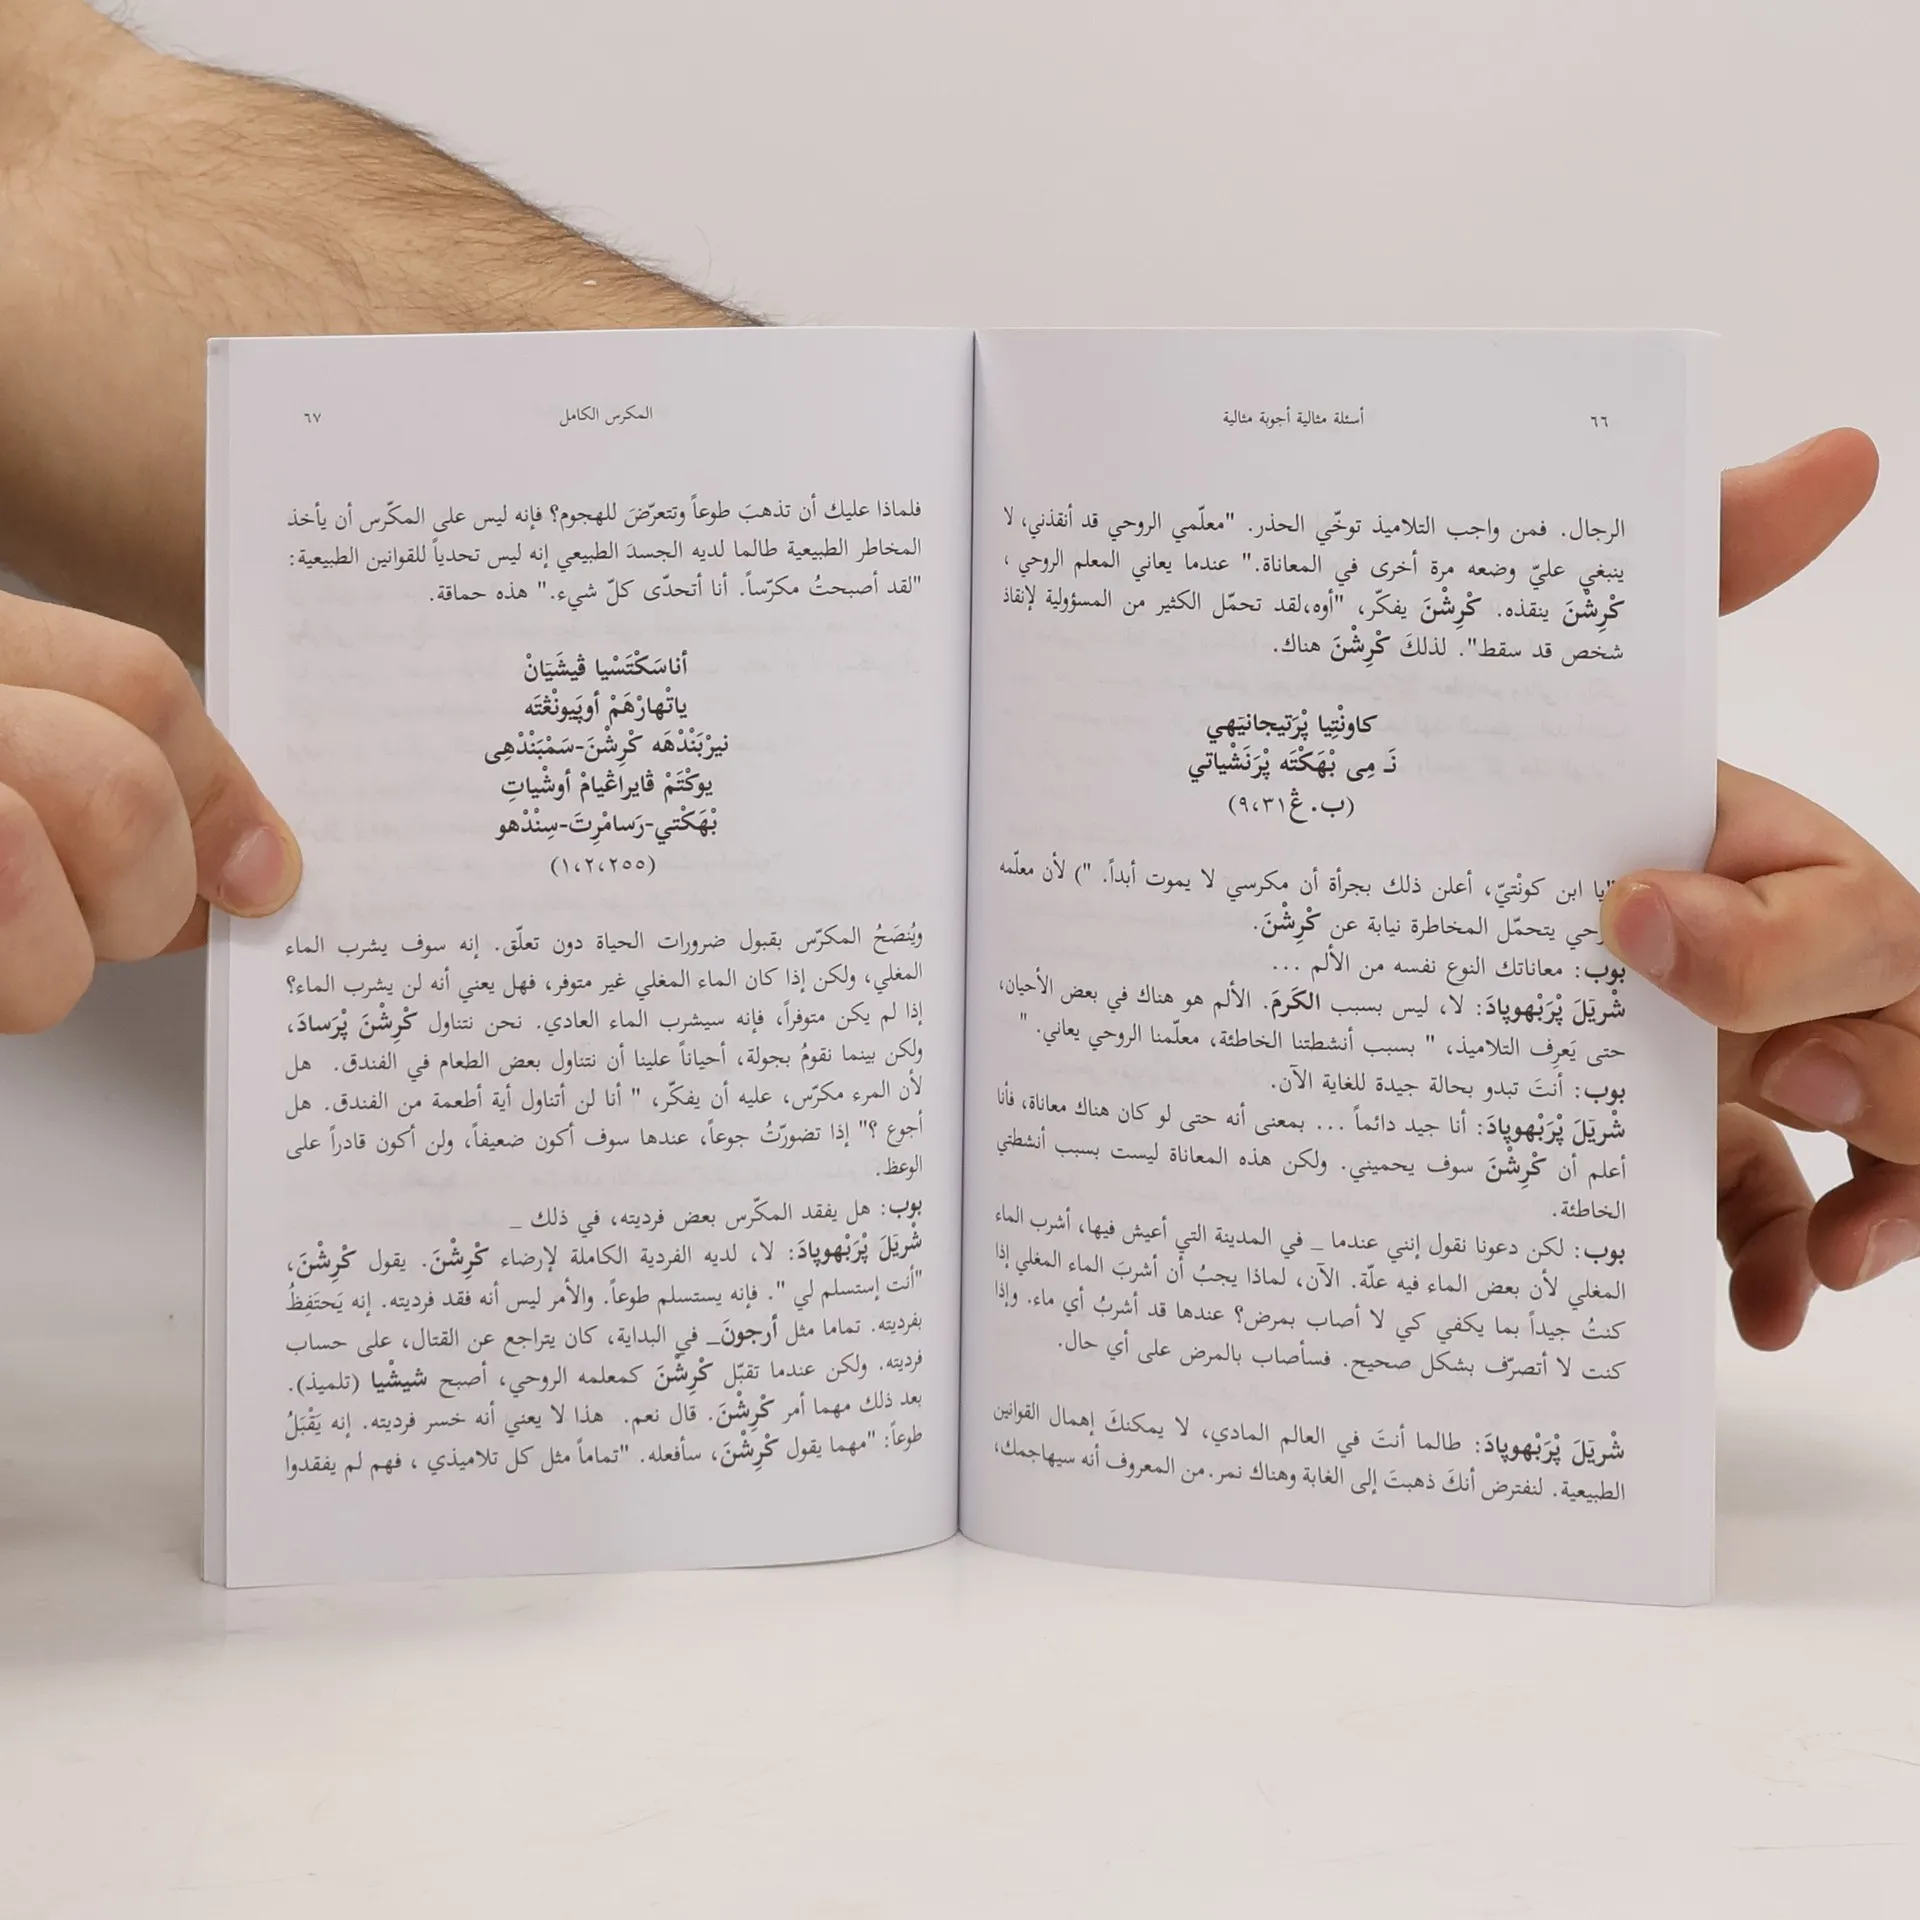 ٦٦
أسئلة مثالية أجوبة مثالية
الرجال. فمن واجب التلاميذ توخّي الحذر. "معلّمي الروحي قد أنقذني، لا
ينبغي عليّ وضعه مرة أخرى في المعاناة." عندما يعاني المعلم الروحي ،
كْرِشْنَ ينقذه. كْرِشْنَ يفكّر، "أوه،لقد تحمّل الكثير من المسؤولية لإنقاذ
شخص قد سقط". لذلكَ كْرِشْنَ هناك.
كاونْتِيا پْرَتيجانيَهي
نَـ مِى بْهَكْتَه پْرَنَشْياتي
(ب. ڠ٩،٣١)
"يا ابن كونْتيّ، أعلن ذلك بجرأة أن مكرسي لا يموت أبداً. ") لأن معلّمه
يتحمّل المخاطرة نيابة عن كْرِشْنَ.
بوب: معاناتك النوع نفسه من الألم ...
شْريَلَ پْرَبْهوپادَ: لا، ليس بسبب الكَرمَ. الألم هو هناك في بعض الأحيان،
حتى يَعرِف التلاميذ، " بسبب أنشطتنا الخاطئة، معلّمنا الروحي يعاني. "
بوب: أنتَ تبدو بحالة جيدة للغاية الآن.
شْريَلَ پْرَبْهوپادَ: أنا جيد دائماً ... بمعنى أنه حتى لو كان هناك معاناة، فأنا
أعلم أن كْرِشْنَ سوف يحميني. ولكن هذه المعاناة ليست بسبب أنشطتي
الخاطئة.
بوب: لكن دعونا نقول إنني عندما _ في المدينة التي أعيش فيها، أشرب الماء
المغلي لأن بعض الماء فيه علّة. الآن، لماذا يجبُ أن أشربَ الماء المغلي إذا
كنتُ جيداً بما يكفي كي لا أصاب بمرض؟ عندها قد أشربُ أي ماء. وإذا
كنت لا أتصرّف بشكل صحيح. فسأصاب بالمرض على أي حال.
شْريَلَ پْرَبْهوپادَ: طالما أنتَ في العالم المادي، لا يمكنكَ إهمال القوانين
الطبيعية. لنفترض أنكَ ذهبتَ إلى الغابة وهناك نمر.من المعروف أنه سيهاجمك،
المكرس الكامل
٦٧
فلماذا عليك أن تذهبَ طوعاً وتتعرّضَ للهجوم؟ فإنه ليس على المكّرس أن يأخذ
المخاطر الطبيعية طالما لديه الجسدَ الطبيعي إنه ليس تحدياً للقوانين الطبيعية:
"لقد أصبحتُ مكرّساً. أنا أتحدّى كلّ شيء." هذه حماقة.
أناسَكْتَسْيا ڤيشَيَانْ
ياتْهارْهَمْ أوپَيونْڠْتَه
نيرْبَنْدْهَه كْرِشْنَ-سَمْبَنْدْهِى
يوكْتَمْ ڤايراڠيامْ أوشْياتِ
بْهَكْتي-رَسامْرِتَ-سِنْدْهو
(١،٢،٢٥٥)
ويُنصَحُ المكرّس بقبول ضرورات الحياة دون تعلّق. إنه سوف يشرب الماء
المغلي، ولكن إذا كان الماء المغلي غير متوفر، فهل يعني أنه لن يشرب الماء؟
إذا لم يكن متوفراً، فإنه سيشرب الماء العادي. نحن نتناول كْرِشْنَ پْرَسادَ،
ولكن بينما نقومُ بجولة، أحياناً علينا أن نتناول بعض الطعام في الفندق. هل
لأن المرء مكرّس، عليه أن يفكّر، " أنا لن أتناول أية أطعمة من الفندق. هل
أجوع ؟" إذا تضورّتُ جوعاً، عندها سوف أكون ضعيفاً، ولن أكون قادراً على
الوعظ.
بوب: هل يفقد المكرّس بعض فرديته، في ذلك _
شْريَلَ پْرَبْهوپادَ: لا، لديه الفردية الكاملة لإرضاء كْرِشْنَ. يقول كْرِشْنَ،
"أنت إستسلم لي ". فإنه يستسلم طوعاً. والأمر ليس أنه فقد فرديته. إنه يَحتَفِظُ
بفرديته. تماما مثل أرجونَـ في البداية، كان يتراجع عن القتال، على حساب
فرديته. ولكن عندما تقبّل كْرِشْنَ كمعلمه الروحي، أصبح شيشْيا (تلميذ).
بعد ذلك مهما أمر كْرِشْنَ. قال نعم. هذا لا يعني أنه خسر فرديته. إنه يَقْبَلُ
طوعاً: "مهما يقول كْرِشْنَ، سأفعله. "تماماً مثل كل تلاميذي ، فهم لم يفقدوا